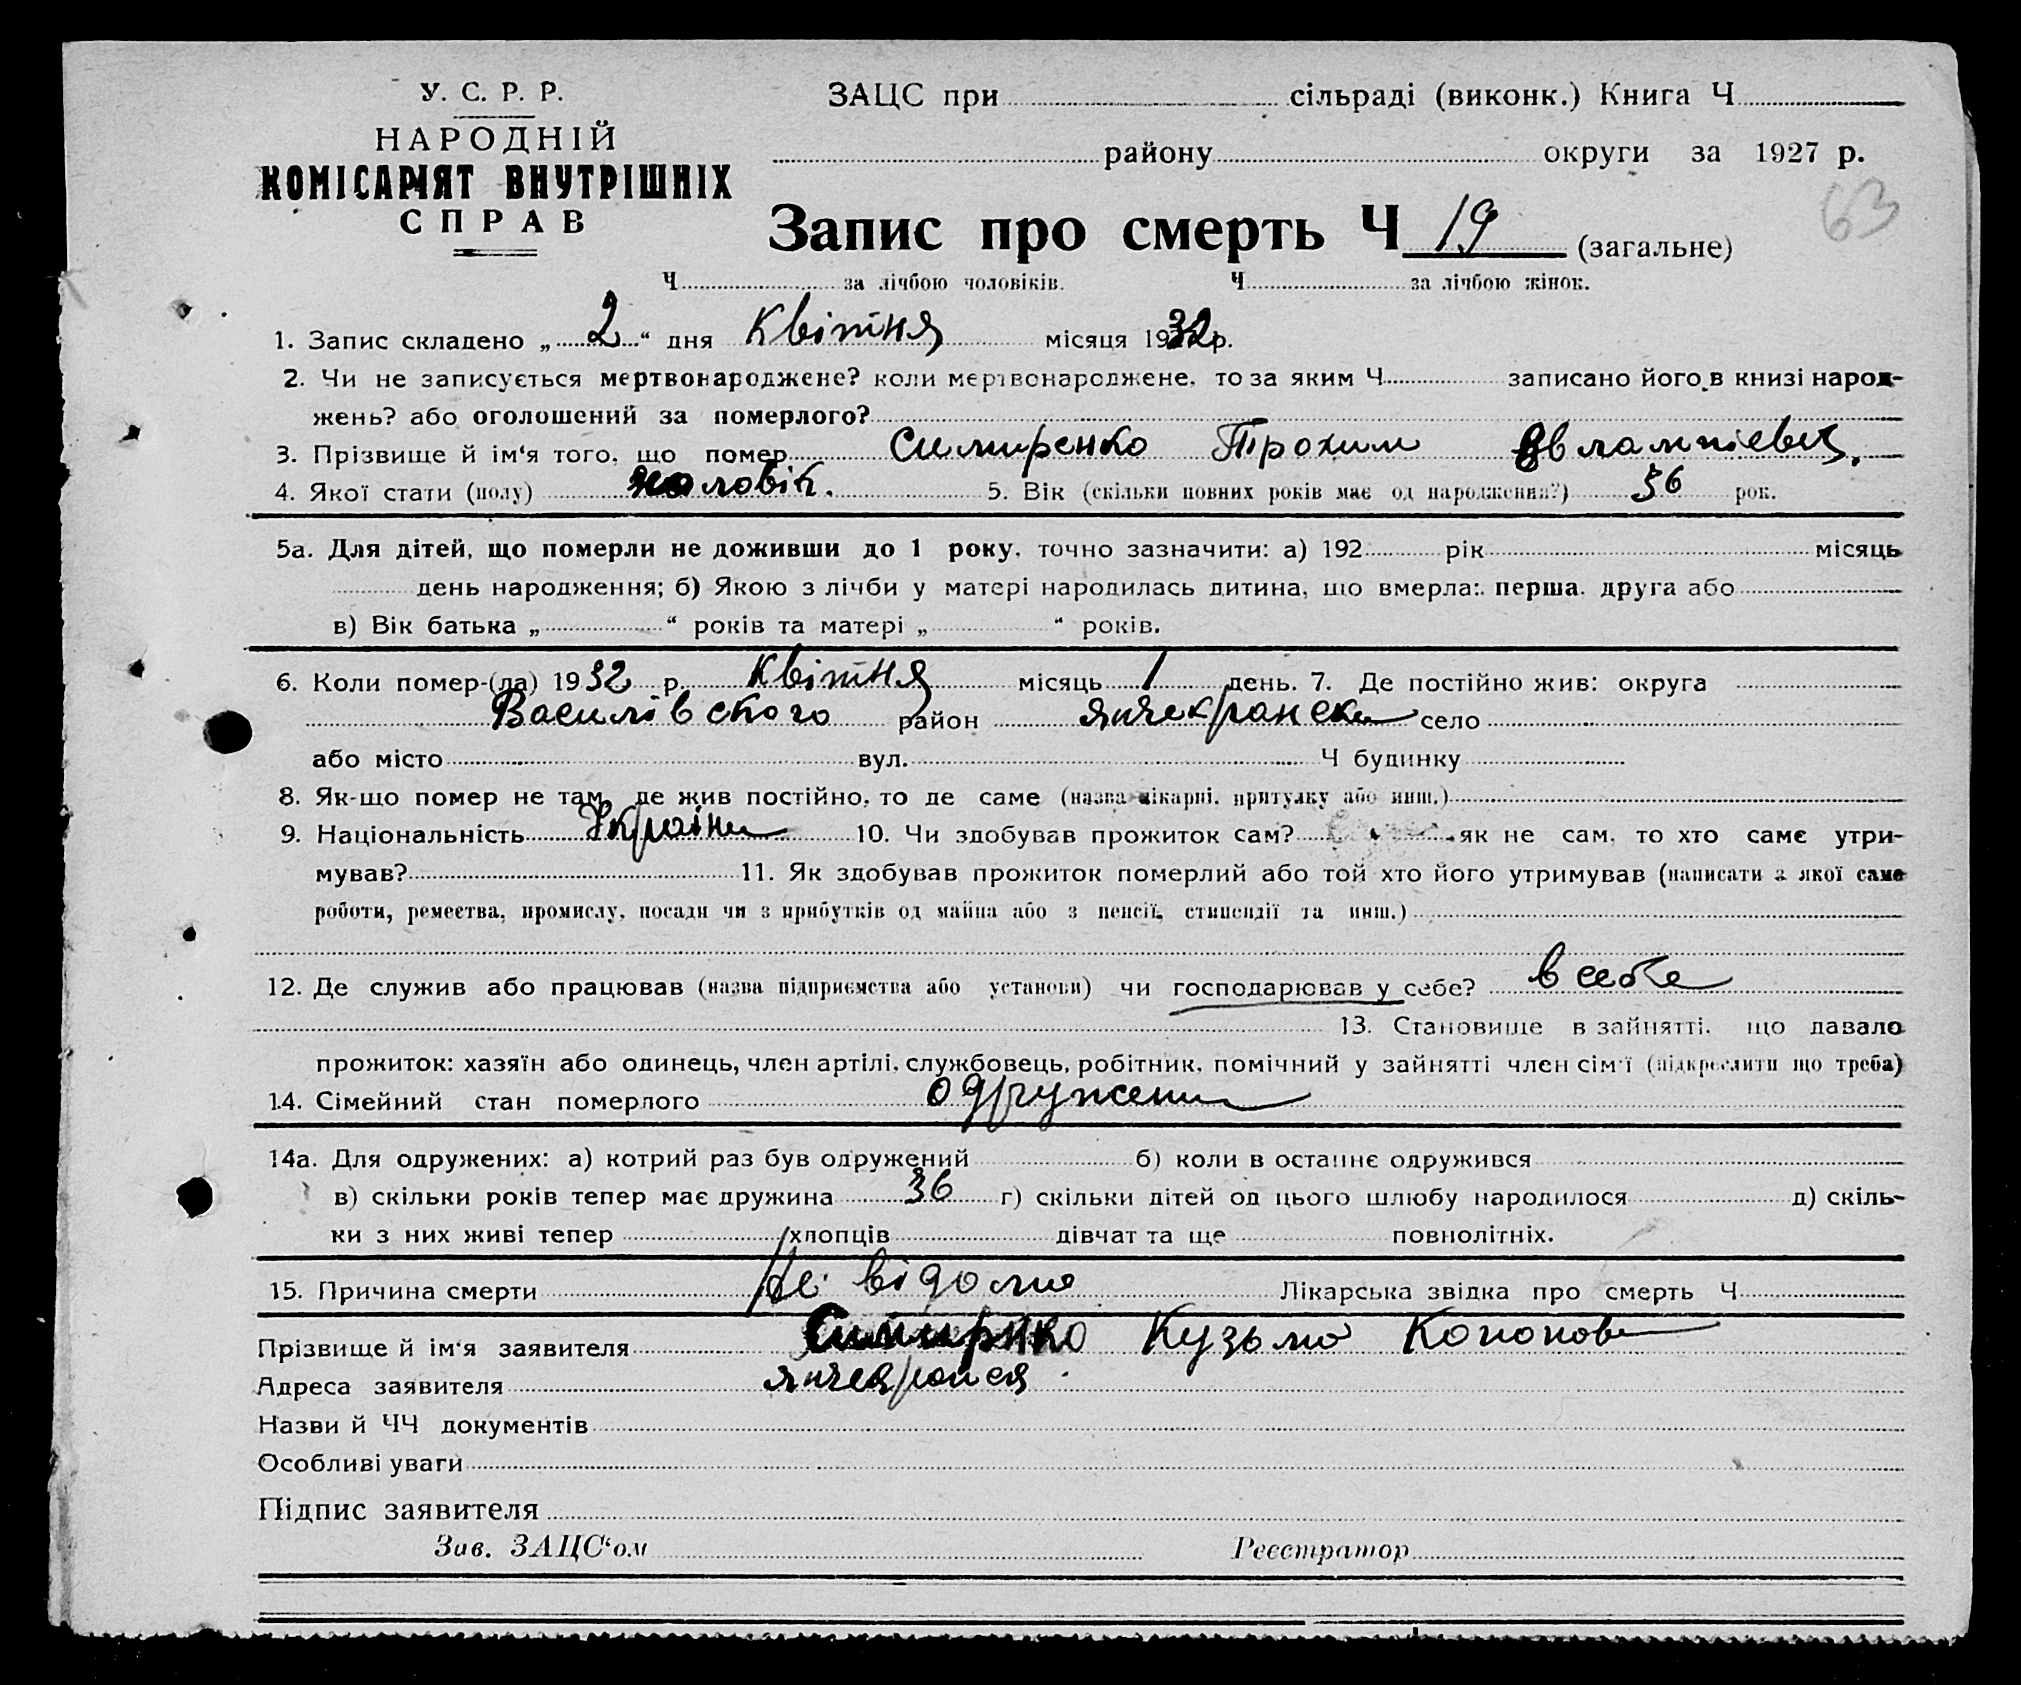 У. С. Р. Р.
НАРОДНІЙ
КОМІСАРІЯТ ВНУТРІШНІХ
СПРАВ
ЗАЦС при сільраді (виконк.) Книга Ч
району округи за 1927 р.
63
Запис про смерть Ч 19 (загальне)
Ч за лічбою чоловіків. Ч за лічбою жінок.
1. Запис складено „ 2 “ дня Квітня місяця 1932 р.
2. Чи не записується мертвонароджене? коли мертвонароджене, то за яким Ч записано його в книзі народ-
жень? або оголошений за померлого?
3. Прізвище й ім‘я того, що помер Симиренко Трохим Євлампієвич.
4. Якої стати (полу) чоловік. 5. Вік (скільки повних років має од народження?) 36 рок.
5а. Для дітей, що померли не доживши до 1 року, точно зазначити: а) 192 рік місяць
день народження; б) Якою з лічби у матері народилась дитина, що вмерла: перша, друга або
в) Вік батька „ “ років та матері „ “ років.
6. Коли помер-(ла) 1932 р. Квітня місяць 1 день. 7. Де постійно жив: округа
Василівского район янчекранска село
або місто вул. Ч будинку
8. Як-що помер не там, де жив постійно, то де саме (назва лікарні, притулку або инш.)
9. Національність Україн 10. Чи здобував прожиток сам? як не сам, то хто саме утри-
мував? 11. Як здобував прожиток померлий або той хто його утримував (написати з якої саме
роботи, ремества, промислу, посади чи з прибутків од майна або з пенсії, стипендії та инш.)
12. Де служив або працював (назва підприємства або установи) чи господарював у себе? в себе
13. Становище в зайнятті, що давало
прожиток: хазяїн або одинець, член артілі, службовець, робітник, помічний у зайнятті член сім‘ї (підкреслити що треба)
14. Сімейний стан померлого одружени
14а. Для одружених: а) котрий раз був одружений б) коли в останнє одружився
в) скільки років тепер має дружина 36 г) скільки дітей од цього шлюбу народилося д) скіль-
ки з них живі тепер хлопців дівчат та ще повнолітніх.
15. Причина смерти Не відомо Лікарська звідка про смерть Ч
Прізвище й ім‘я заявителя Симиренко Кузьмо Кононов
Адреса заявителя
Назви й ЧЧ документів
Особливі уваги
Підпис заявителя
Зав. ЗАЦС‘ом Реєстратор